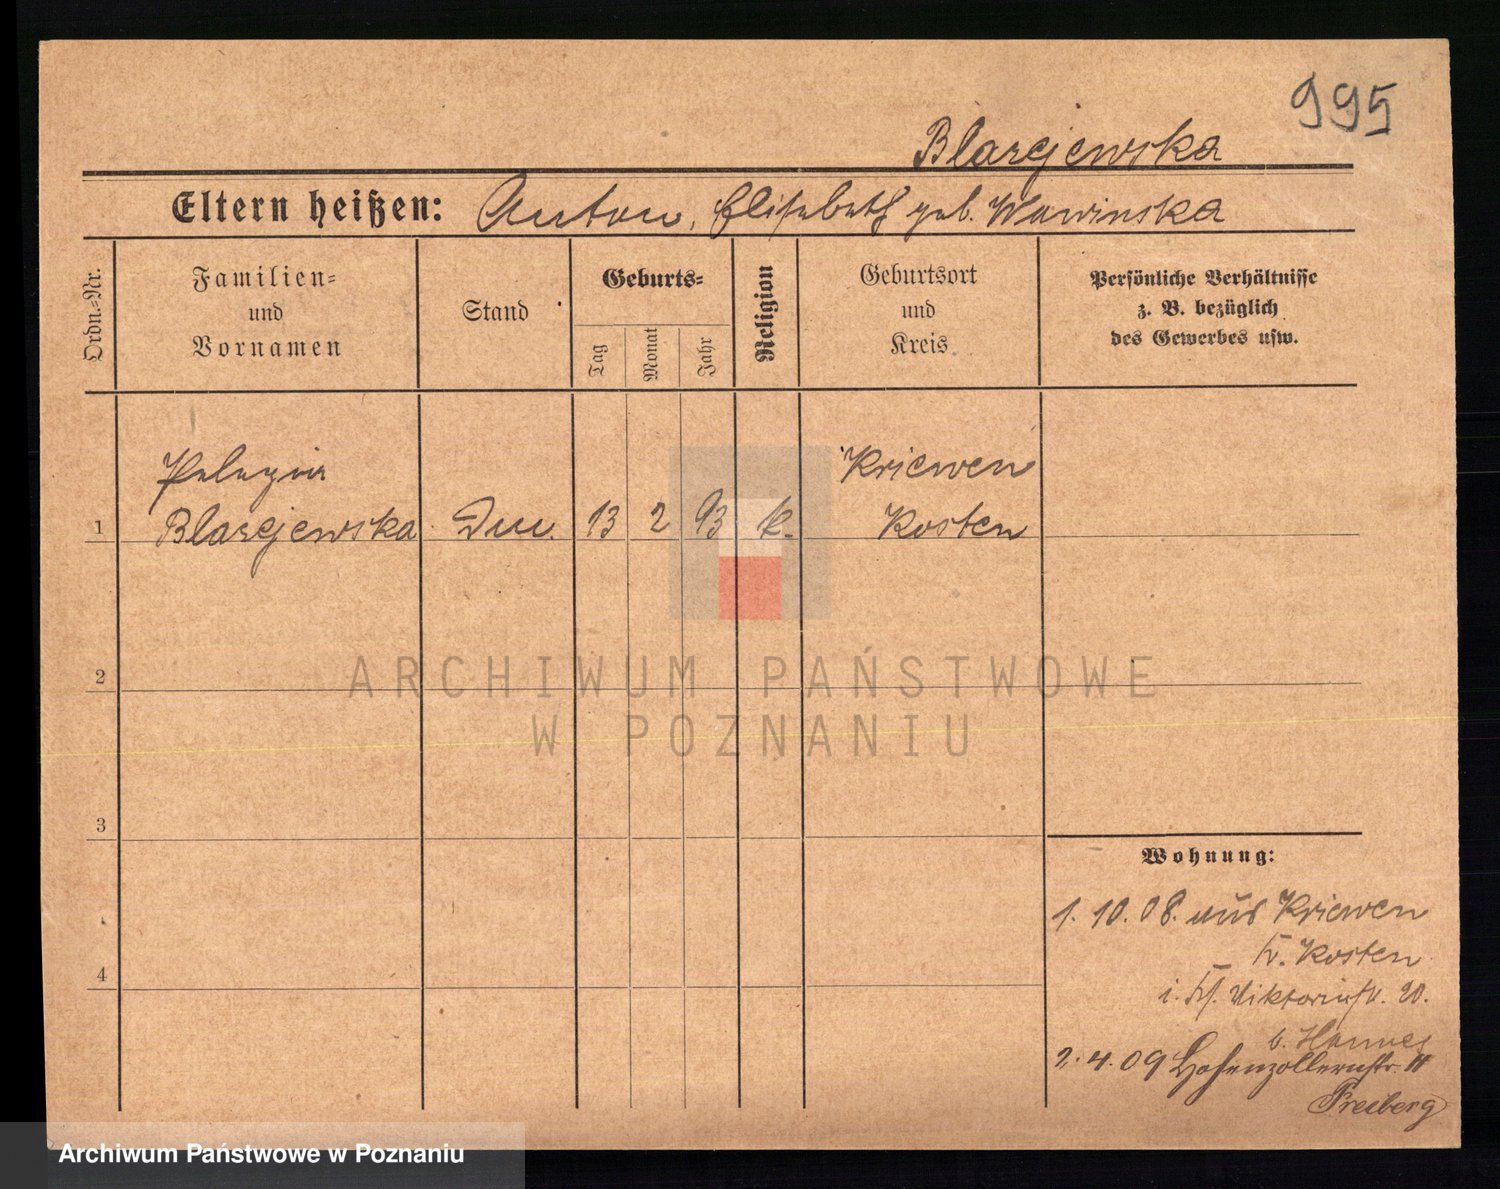 995
Blazejewska
Eltern heißen: Anton, Elisabeth geb. Wawinska
Ordn.=Nr.
Familien=
und
Vornamen
Stand
Geburts=
Tag
Monat
Jahr
Religion
Geburtsort
und
Kreis
Persönliche Verhältnisse
z. B. bezüglich
des Gewerbes usw.
Pelagia
Kriewen
1 Blazejewska 13 2 93 k. Kosten
2
3
4
Wohnung:
1. 10. 08. aus Kriewen
Kr. Kosten
Viktoriastr. 20.
b.
2. 4. 09 Hohenzollernstr.
Freiberg
ARCHIWUM PAŃSTWOWE
W POZNANIU
Archiwum Państwowe w Poznaniu